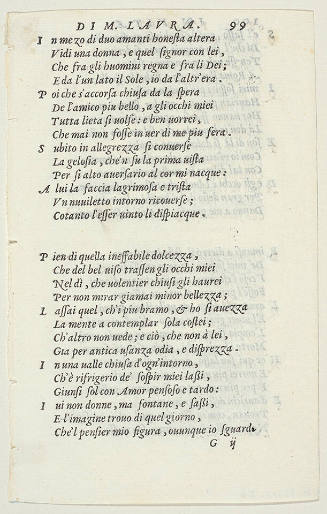 DI M. LAVRA. 99
In mezo di duo amanti honesta altera
Vidi una donna, e quel signor con lei,
Che fra gli huomini regna e fra li Dei;
E da l'un lato il Sole, io da l'altr'era.
Poi che s'accorsa chiusa da la spera
De l'amico piu bello, a gli occhi miei
Tutta lieta si uolse: e ben uorrei,
Che mai non fosse in uer di me piu fera.
Subito in allegrezza si conuerse
La gelosia, che'n su la prima uista
Per si alto auersario al cor mi nacque:
A lui la faccia lagrimosa e trista
Vn nuuiletto intorno ricouerse;
Cotanto l'esser uinto li dispiacque.
Pien di quella ineffabile dolcezza,
Che del bel uiso trassen gli occhi miei
Nel dì, che uolentier chiusi gli haurei
Per non mirar giamai minor bellezza;
Lassai quel, ch'i piu bramo, & ho si auezza
La mente a contemplar sola costei;
Ch'altro non uede; e ciò, che non à lei,
Gia per antica usanza odia, e disprezza.
In una ualle chiusa d'ogn'intorno,
Ch'è rifrigerio de' sospir miei lassi,
Giunsi sol con Amor pensoso e tardo:
Iui non donne, ma fontane, e sassi,
E l'imagine trouo di quel giorno,
Che'l pensier mio figura, ouunque io sguardo.
G ij